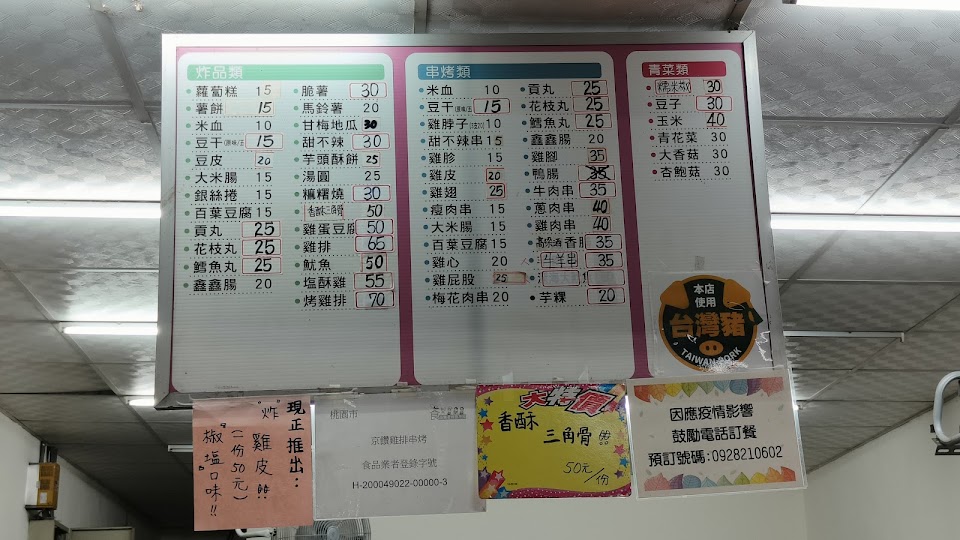 炸品類
蘿蔔糕 15
薯餅 15
米血 10
豆干 15
豆皮 20
大米腸 15
銀絲捲 15
百葉豆腐 15
貢丸 25
花枝丸 25
鱈魚丸 25
鑫鑫腸 20
脆薯 30
馬鈴薯 20
甘梅地瓜 30
甜不辣 30
芋頭酥餅 25
湯圓 25
糯糬燒 30
香酥三角骨 50
雞蛋豆腐 50
雞排 65
魷魚 50
塩酥雞 55
烤雞排 70
串烤類
米血 10
豆干 15
雞脖子 10
甜不辣串 15
雞胗 15
雞皮 20
雞翅 25
瘦肉串 15
大米腸 15
百葉豆腐 15
雞心 20
雞屁股 25
梅花肉串 20
貢丸 25
花枝丸 25
鱈魚丸 25
鑫鑫腸 20
雞腳 35
鴨腸 35
牛肉串 35
蔥肉串 40
雞肉串 40
香腸 35
牛羊串 35
芋粿 20
青菜類
糯米椒 30
豆子 30
玉米 40
青花菜 30
大香菇 30
杏鮑菇 30
本店
使用
台灣豬
TAIWAN PORK
現正推出:
"炸"雞皮!!
(一份50元)
"椒塩口味"!!
桃園市
京鑽雞排串烤
食品業者登錄字號
H-200049022-00000-3
大特價
香酥
三角骨!!
50元/份
因應疫情影響
鼓勵電話訂餐
預訂號碼:0928210602